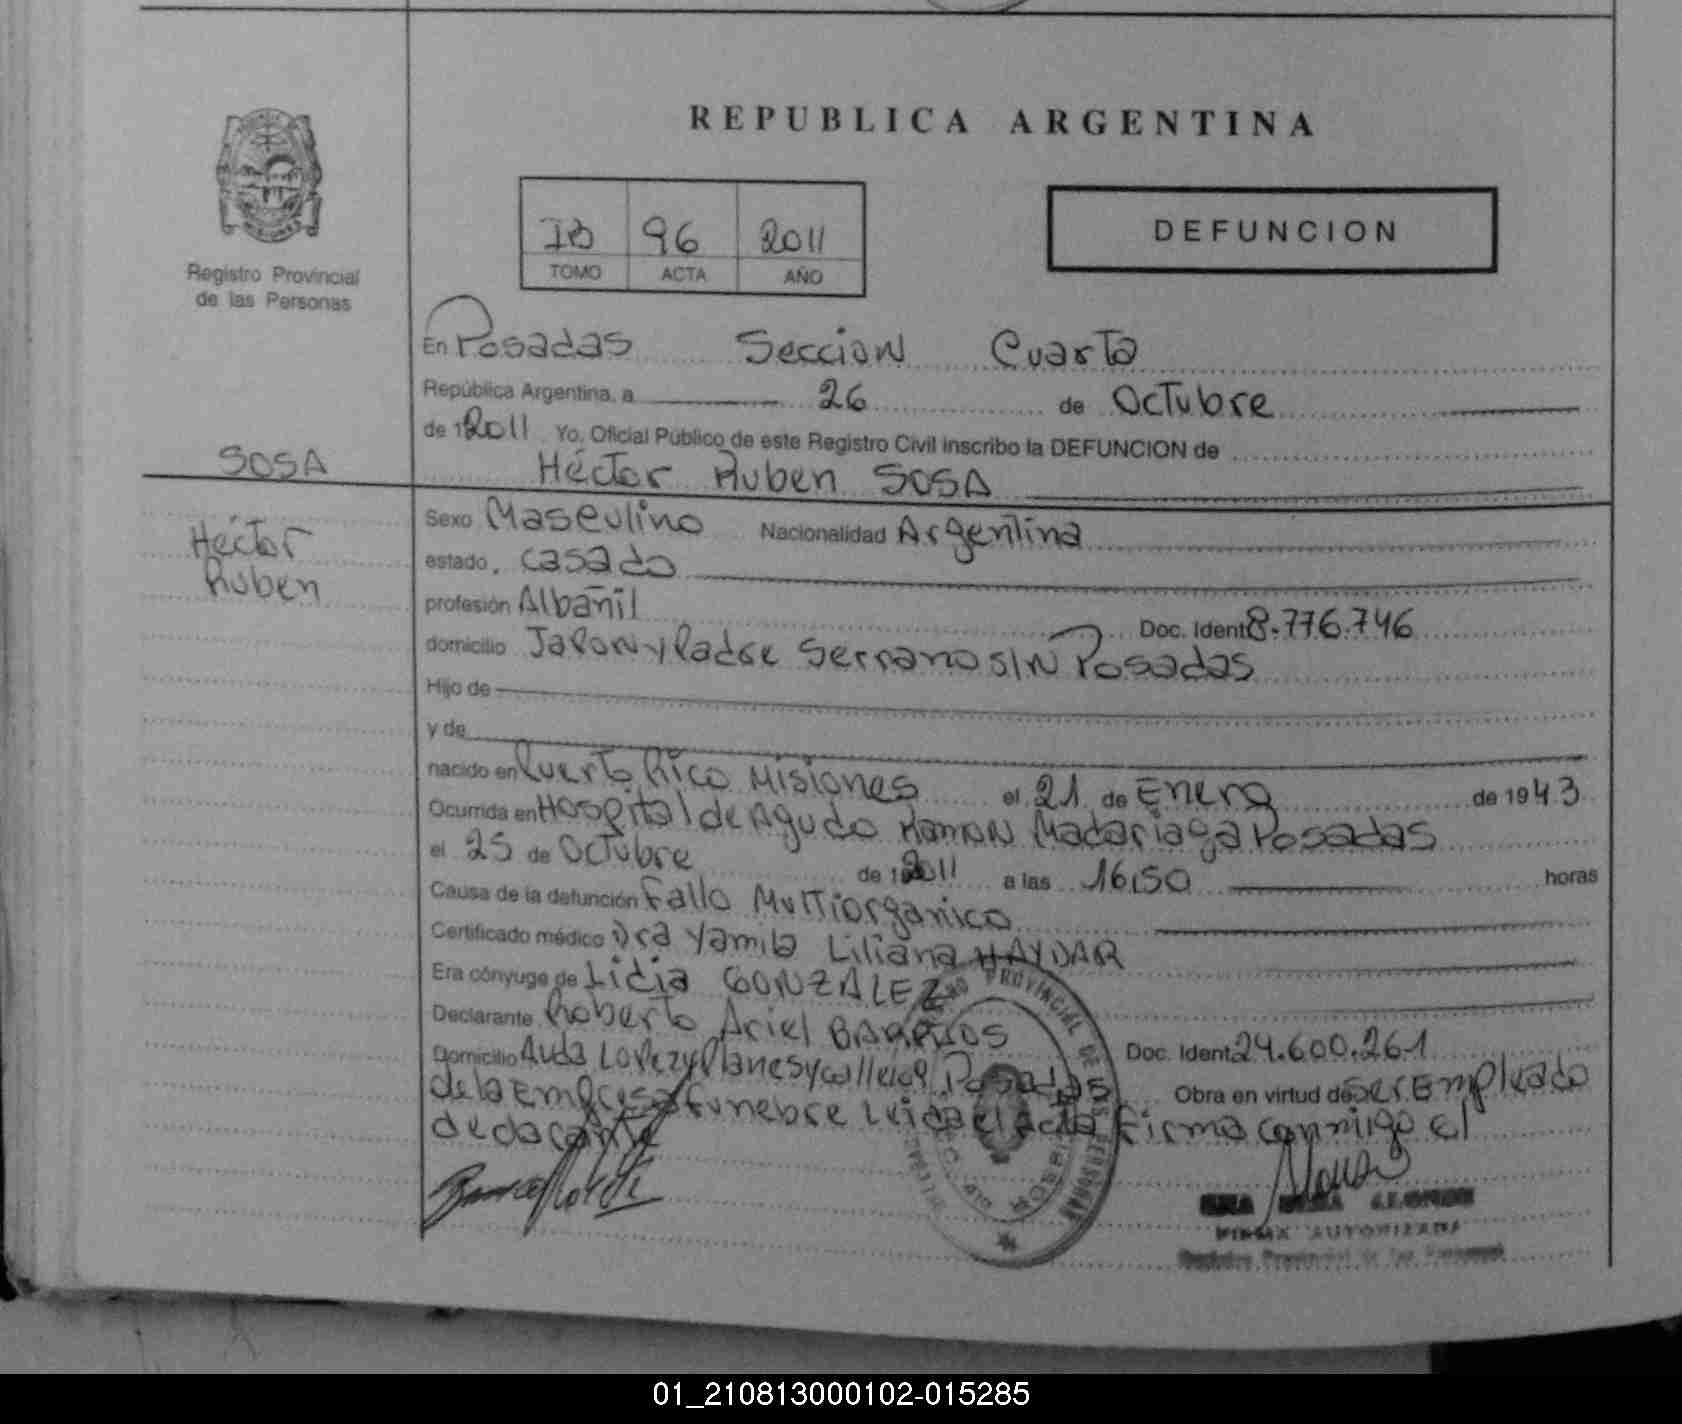 REPUBLICA ARGENTINA
96 2011
TOMO ACTA AÑO
DEFUNCION
Registro Provincial
de las Personas
En Posadas Seccion Cuarta
República Argentina, a 26 de Octubre
de 2011 Yo, Oficial Público de este Registro Civil inscribo la DEFUNCION de
SOSA
Héctor Ruben SOSA
Héctor
Ruben
Sexo Masculino Nacionalidad Argentina
estado, casado
profesión Albañil Doc. Ident 8.776.746
domicilio Japon y Padre Serrano S/N Posadas
Hijo de
y de
nacido en Puerto Rico Misiones el 21 de Enero de 1943
Ocurrida en Hospital de Agudo Ramon Madariaga Posadas
el 25 de Octubre de 2011 a las 16,50 horas
Causa de la defunción Fallo Multiorganico
Certificado médico Dra Yamila Liliana HAYDAR
Era cónyuge de Lidia GONZALEZ
Declarante Roberto Ariel BARRIOS Doc. Ident 24.600.261
Domicilio Avda Lopez y Planes y calle 109 Posadas Obra en virtud de Ser Empleado
de la Empresa Funebre Leida el Acta Firma conmigo el
declarante
PROVINCIAL DE LAS PERSONAS
FIRMA AUTORIZADA
Registro Provincial de las Personas
01_210813000102-015285